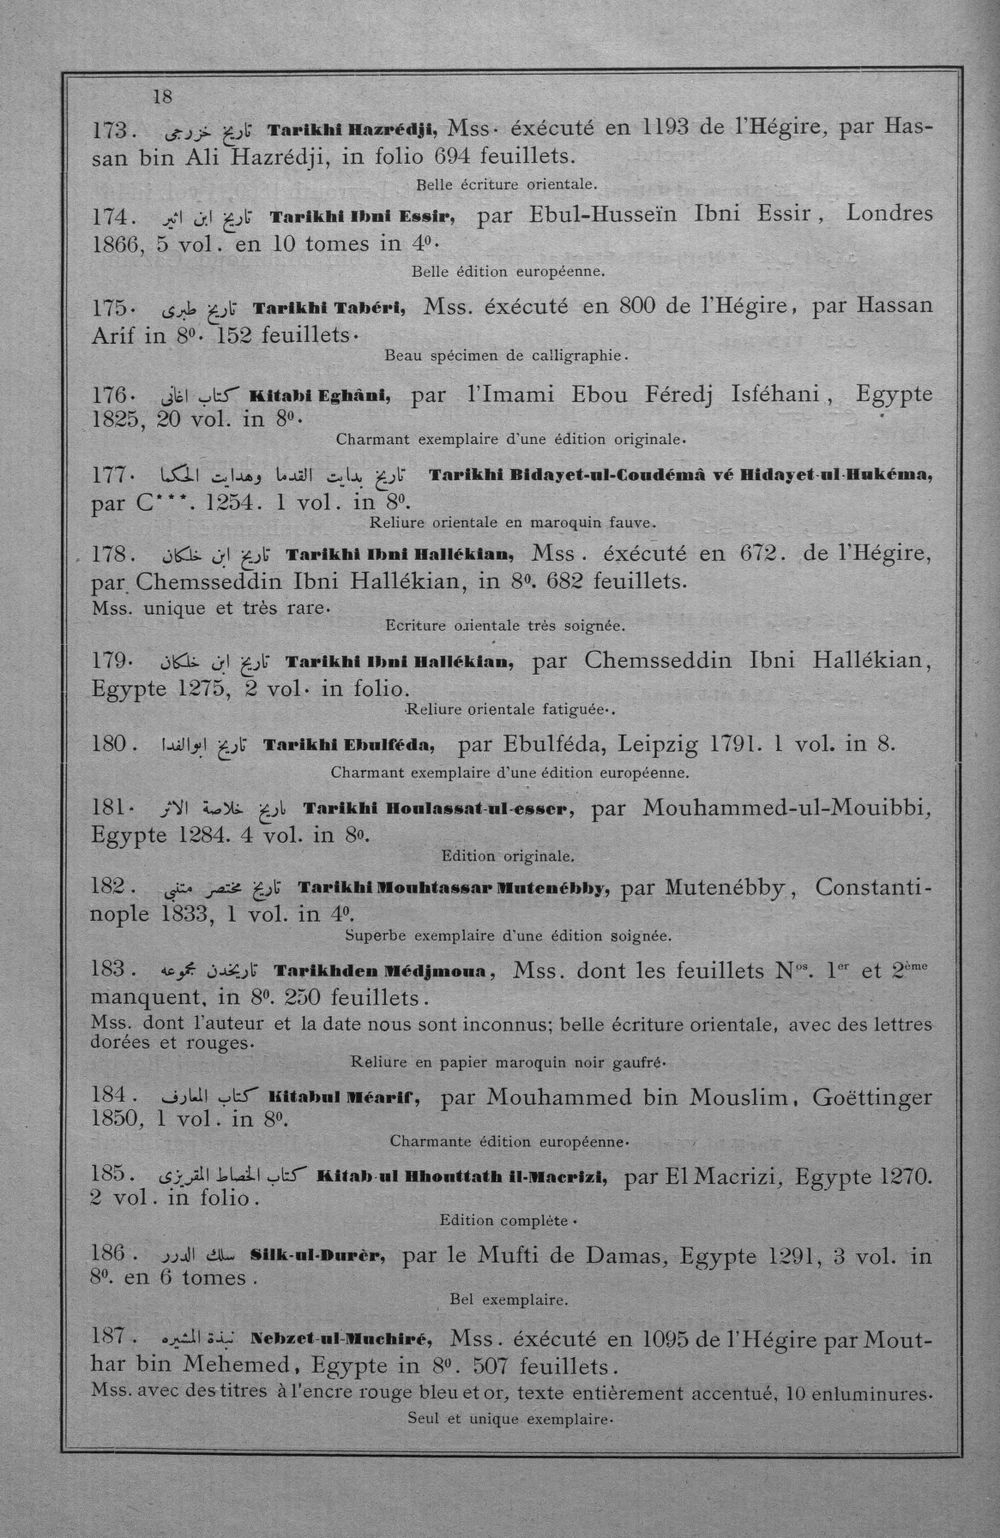 18
173. تاريخ خزرجى Tarikhi Hazrédji, Mss. éxécuté en 1193 de l'Hégire, par Has-
san bin Ali Hazrédji, in folio 694 feuillets.
Belle écriture orientale.
174. تاريخ ابن اثير Tarikhi Ibni Essir, par Ebul-Husseïn Ibni Essir, Londres
1866, 5 vol. en 10 tomes in 4º.
Belle édition européenne.
175. تاريخ طبرى Tarikhi Tabéri, Mss. éxécuté en 800 de l'Hégire, par Hassan
Arif in 8º. 152 feuillets.
Beau spécimen de calligraphie.
176. كتاب اغانى Kitabi Eghâni, par l'Imami Ebou Féredj Isféhani, Egypte
1825, 20 vol. in 8º.
Charmant exemplaire d'une édition originale.
177. تاريخ بدايت القدما وهدايت الحكما Tarikhi Bidayet-ul-Coudémâ vé Hidayet-ul-Hukéma,
par C***. 1254. 1 vol. in 8º.
Reliure orientale en maroquin fauve.
178. تاريخ ابن خلكان Tarikhi Ibni Hallékian, Mss. éxécuté en 672. de l'Hégire,
par Chemsseddin Ibni Hallékian, in 8º. 682 feuillets.
Mss. unique et très rare.
Ecriture orientale très soignée.
179. تاريخ ابن خلكان Tarikhi Ibni Hallékian, par Chemsseddin Ibni Hallékian,
Egypte 1275, 2 vol. in folio.
Reliure orientale fatiguée.
180. تاريخ ابوالفدا Tarikhi Ebulféda, par Ebulféda, Leipzig 1791. 1 vol. in 8.
Charmant exemplaire d'une édition européenne.
181. تاريخ خلاصة الاثر Tarikhi Houlassat-ul-esser, par Mouhammed-ul-Mouibbi,
Egypte 1284. 4 vol. in 8º.
Edition originale.
182. تاريخ مختصر متنبى Tarikhi Mouhtassar Mutenébby, par Mutenébby, Constanti-
nople 1833, 1 vol. in 4º.
Superbe exemplaire d'une édition soignée.
183. تاريخدن مجموعه Tarikhden Médjmoua, Mss. dont les feuillets Nos. 1er et 2ème
manquent, in 8º. 250 feuillets.
Mss. dont l'auteur et la date nous sont inconnus; belle écriture orientale, avec des lettres
dorées et rouges.
Reliure en papier maroquin noir gaufré.
184. كتاب المعارف Kitabul Méarif, par Mouhammed bin Mouslim, Goëttinger
1850, 1 vol. in 8º.
Charmante édition européenne.
185. كتاب الخطاط المقريزى Kitab-ul Hhouttath il-Macrizi, par El Macrizi, Egypte 1270.
2 vol. in folio.
Edition complète.
186. سلك الدرر Silk-ul-Durèr, par le Mufti de Damas, Egypte 1291, 3 vol. in
8º. en 6 tomes.
Bel exemplaire.
187. نبذة المشيره Nebzet-ul-Muchiré, Mss. éxécuté en 1095 de l'Hégire par Mout-
har bin Mehemed, Egypte in 8º. 507 feuillets.
Mss. avec des titres à l'encre rouge bleu et or, texte entièrement accentué, 10 enluminures.
Seul et unique exemplaire.